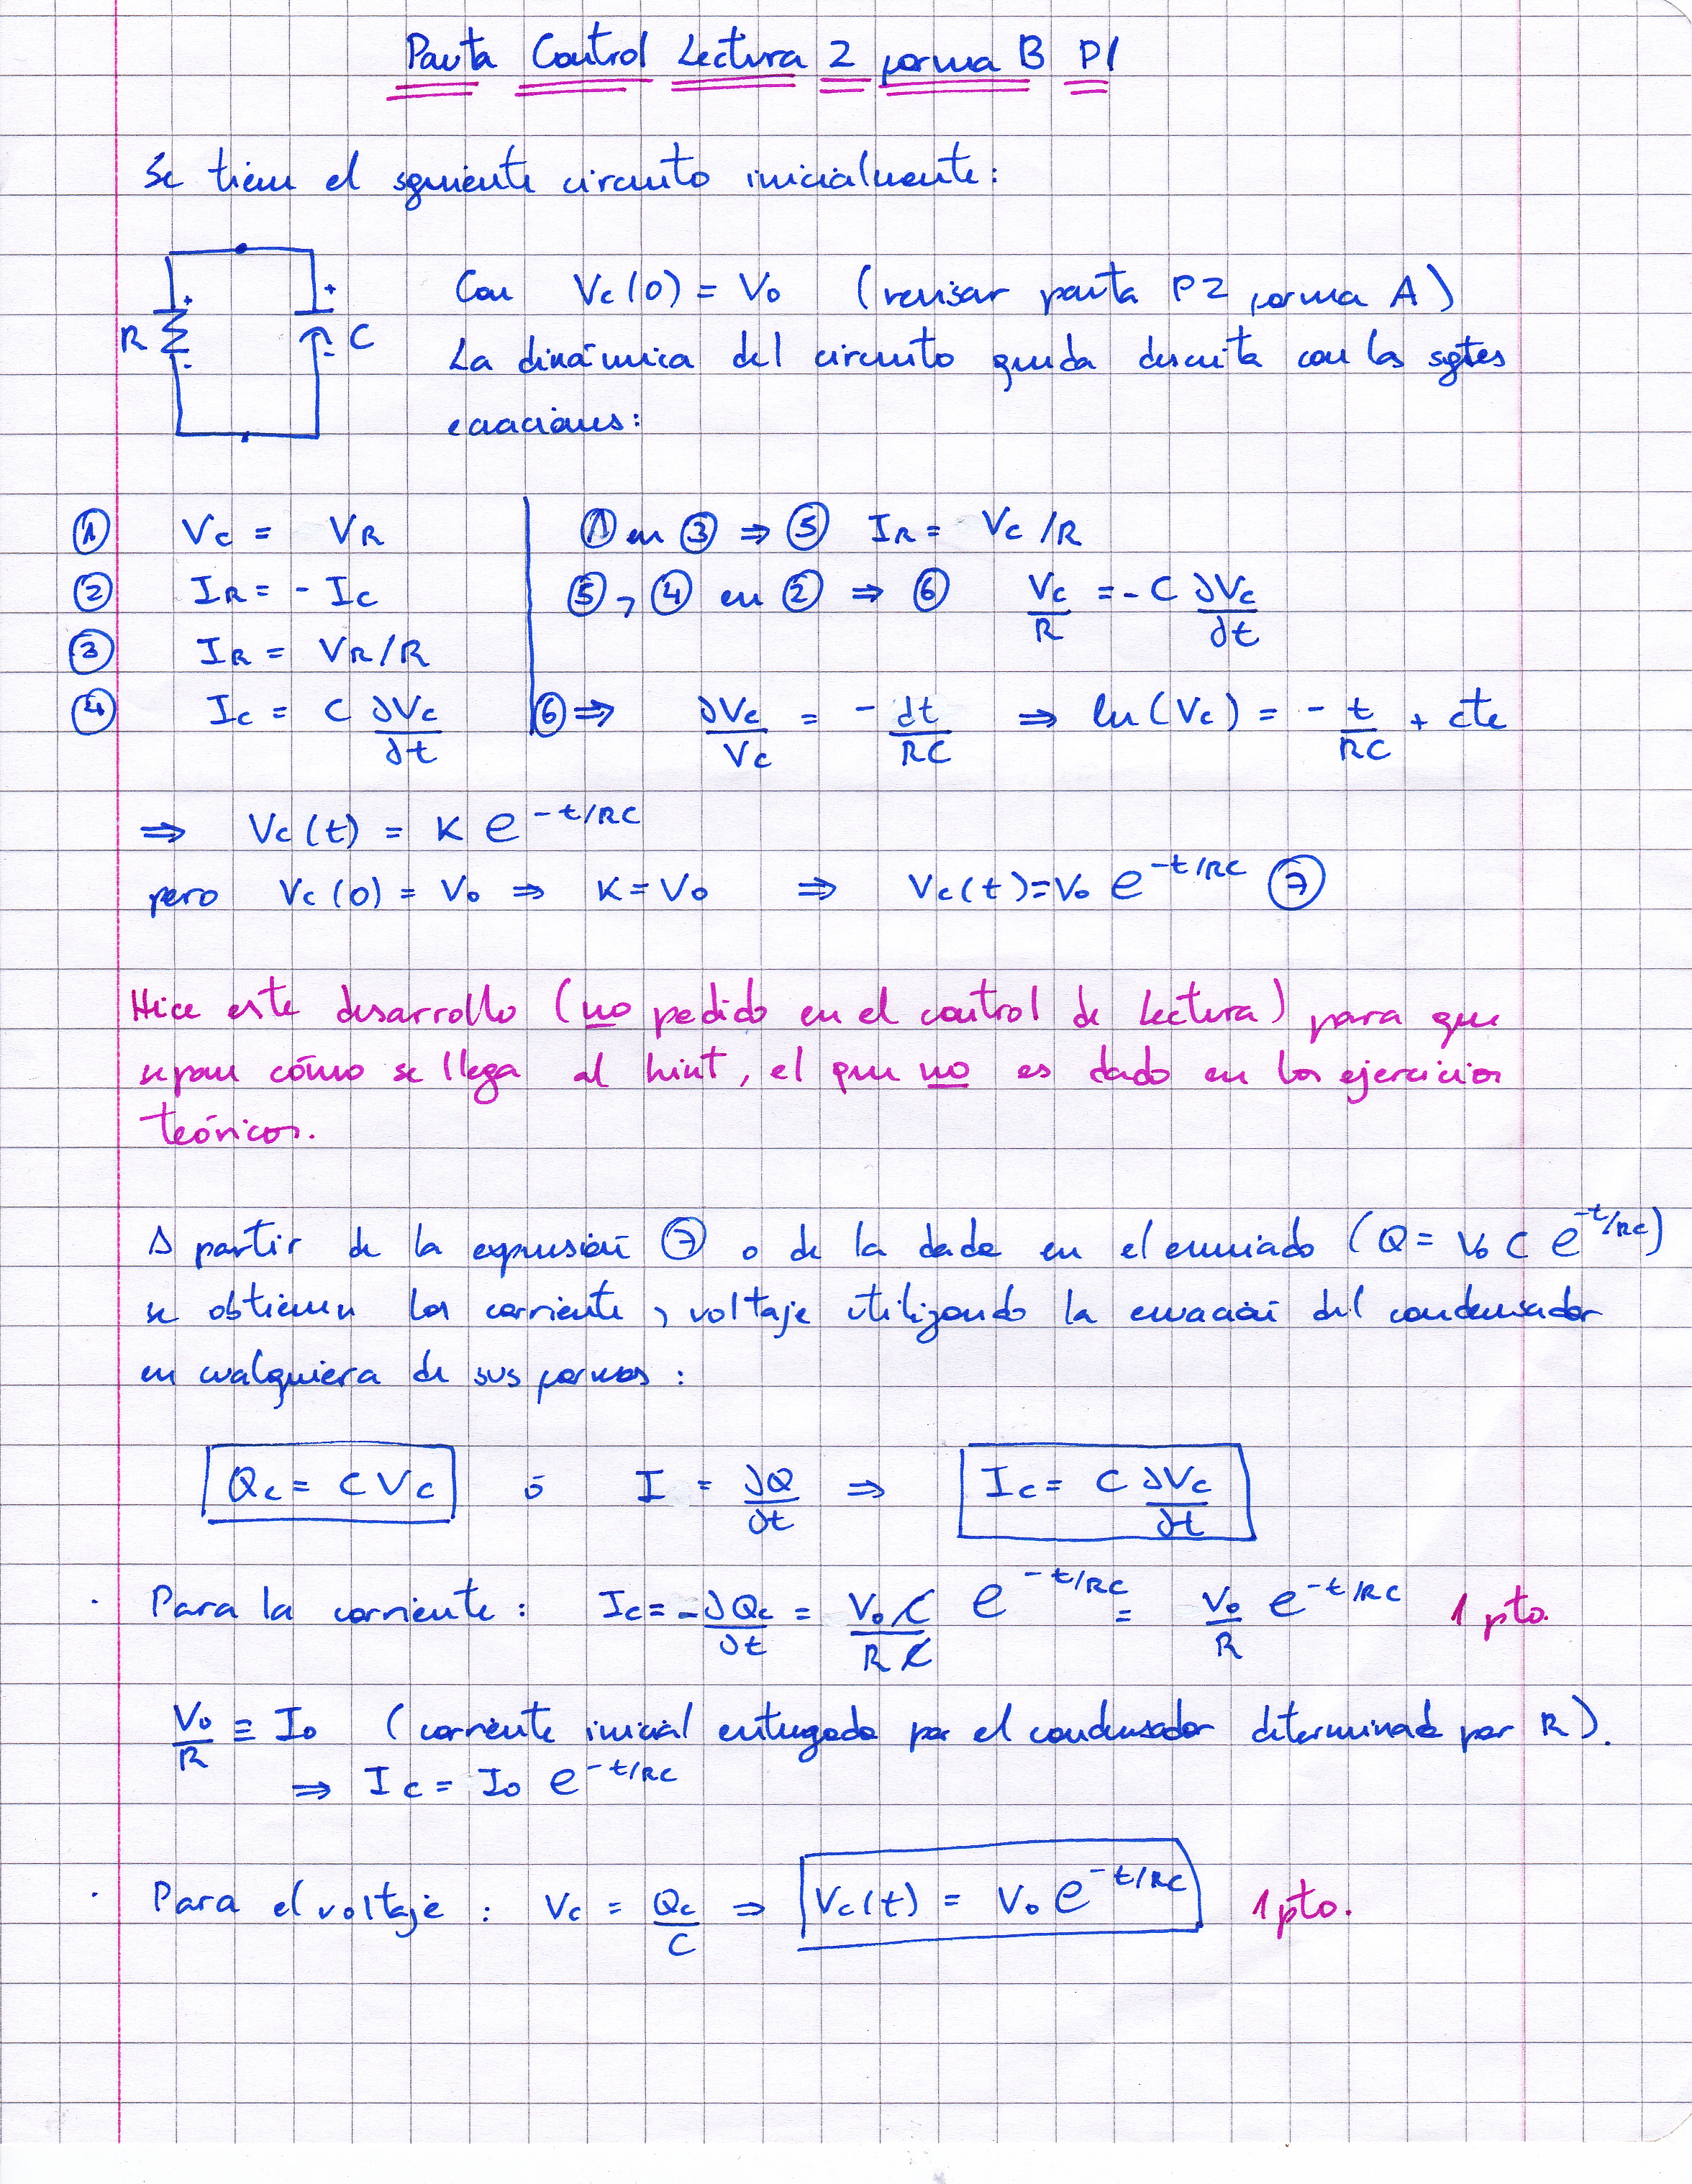 Pauta Control Lectura 2 forma B P1
Se tiene el siguiente circuito inicialmente:
R + - + - C
Con Vc(0) = V0 (revisar pauta P2 forma A)
La dinámica del circuito queda descrita con las sgtes
ecuaciones:
① Vc = VR
② IR = - Ic
③ IR = VR/R
④ Ic = C dVc/dt
① en ③ ⇒ ⑤ IR = Vc/R
⑤, ④ en ② ⇒ ⑥ Vc/R = - C dVc/dt
⑥ ⇒ dVc/Vc = - dt/RC ⇒ ln(Vc) = - t/RC + cte
⇒ Vc(t) = K e^(-t/RC)
pero Vc(0) = V0 ⇒ K = V0 ⇒ Vc(t) = V0 e^(-t/RC) ⑦
Hice este desarrollo (no pedido en el control de lectura) para que
sepan cómo se llega al hint, el que no es dado en los ejercicios
teóricos.
A partir de la expresión ⑦ o de la dada en el enunciado (Q = V0 C e^(-t/RC))
se obtienen las corriente, voltaje utilizando la ecuación del condensador
en cualquiera de sus formas:
Qc = C Vc ó I = dQ/dt ⇒ Ic = C dVc/dt
· Para la corriente: Ic = - dQc/dt = V0 C/RC e^(-t/RC) = V0/R e^(-t/RC) 1 pto.
V0/R ≡ I0 (corriente inicial entregada por el condensador determinada por R).
⇒ Ic = I0 e^(-t/RC)
· Para el voltaje: Vc = Qc/C ⇒ Vc(t) = V0 e^(-t/RC) 1 pto.